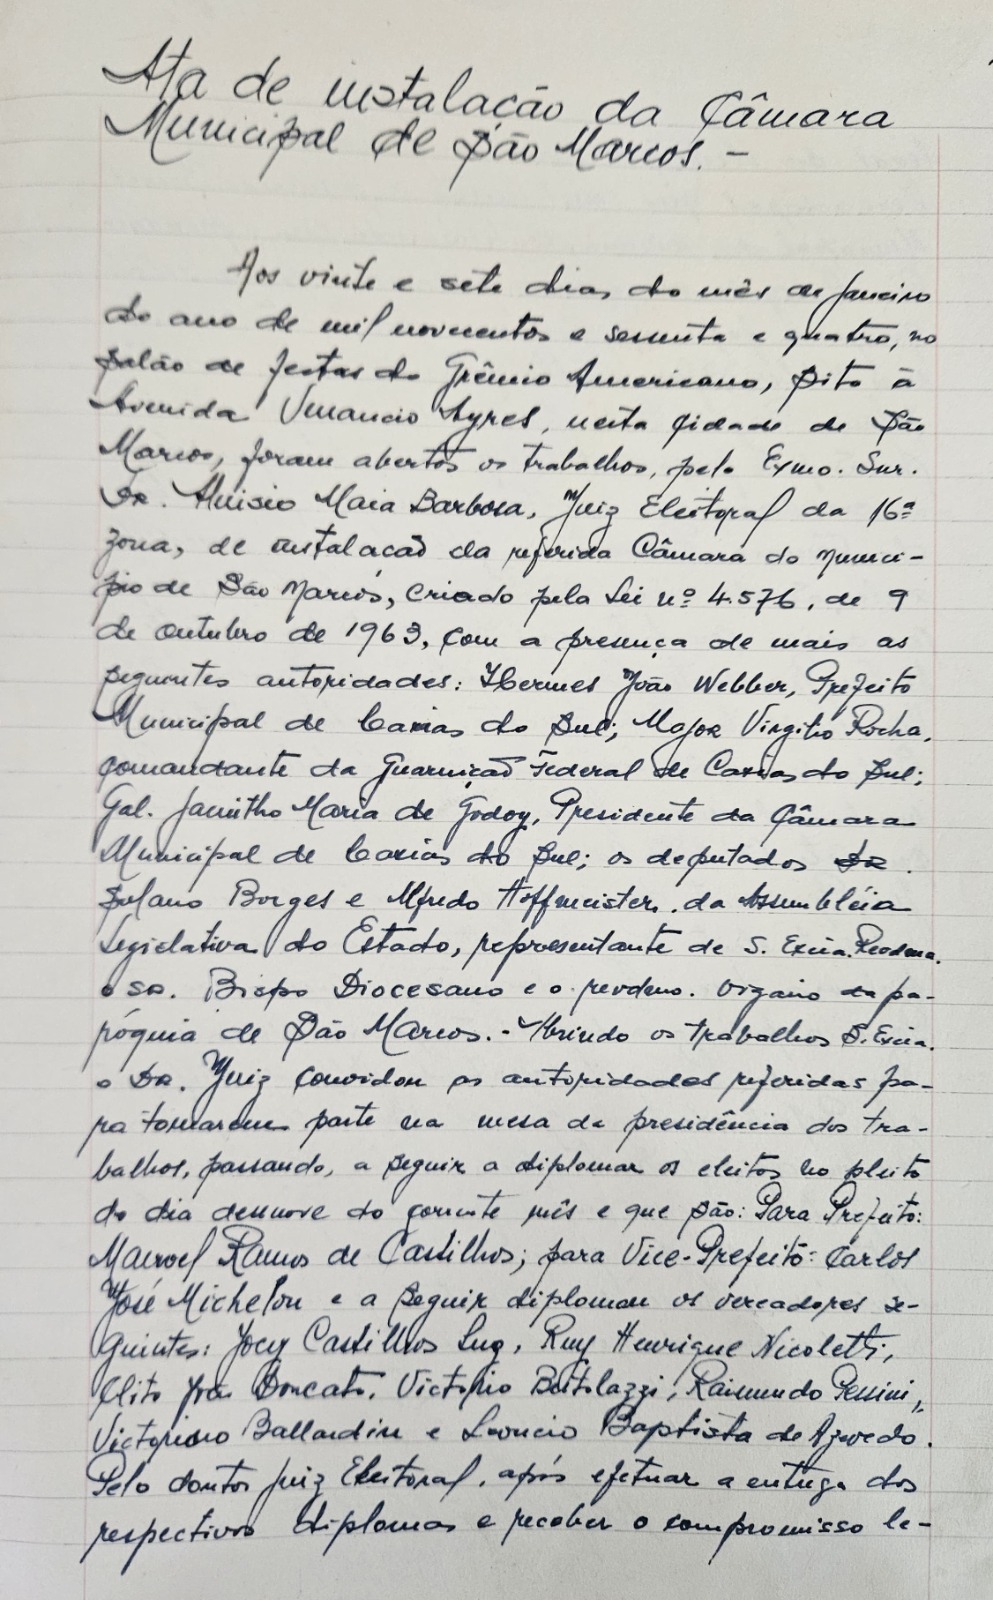 Ata de instalação da Câmara
Municipal de São Marcos. -
Aos vinte e sete dias do mês de Janeiro
do ano de mil novecentos e sessenta e quatro, no
salão de festas do Grêmio Americano, sito à
Avenida Venancio Ayres, nesta cidade de São
Marcos, foram abertos os trabalhos, pelo Exmo. Snr.
Dr. Aluisio Maia Barbosa, Juiz Eleitoral da 16ª
zona, de instalação da referida Câmara do municí-
pio de São Marcos, criado pela Lei nº 4.576, de 9
de outubro de 1963, com a presença de mais as
seguintes autoridades: Hermes João Webber, Prefeito
Municipal de Caxias do Sul; Major Virgilio Rocha,
comandante da Guarnição Federal de Caxias do Sul;
Gal. Jacintho Maria de Godoy, Presidente da Câmara
Municipal de Caxias do Sul; os deputados Dr.
Solano Borges e Alfredo Hoffmeister, da Assembléia
Legislativa do Estado, representante de S. Excia. Revdma.
o sr. Bispo Diocesano e o revdmo. vigário da pa-
róquia de São Marcos. - Abrindo os trabalhos S. Excia.
o Dr. Juiz convidou as autoridades referidas pa-
ra tomarem parte na mesa da presidência dos tra-
balhos, passando, a seguir a diplomar os eleitos no pleito
do dia dezenove do corrente mês e que são: Para Prefeito:
Manoel Ramos de Castilhos; para Vice-Prefeito: Carlos
José Michelon e a seguir diplomou os vereadores se-
guintes: Jocy Castilhos Luz, Ruy Henrique Nicoletti,
Elito João Doncato, Victorio Bortolazzi, Raimundo Pessini,
Victorino Ballardin e Leoncio Baptista de Azevedo.
Pelo doutor Juiz Eleitoral, após efetuar a entrega dos
respectivos diplomas e receber o compromisso le-